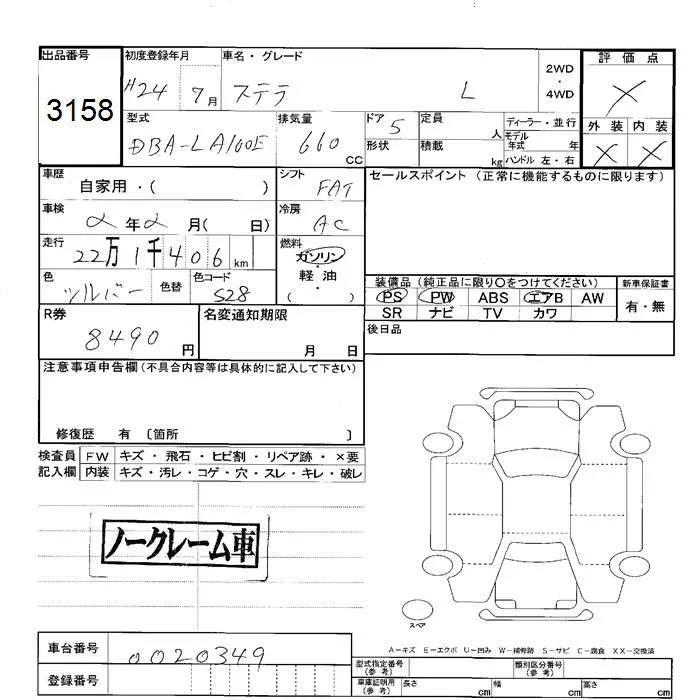 出品番号 初度登録年月 車名・グレード 2WD・4WD 評価点
3158 H24 7月 ステラ L X
型式 排気量 ドア 定員 ディーラー・並行 外装 内装
DBA-LA100E 660 CC 5 人 モデル年式 年 X X
形状 積載 kg ハンドル 左・右
車歴 シフト セールスポイント (正常に機能するものに限ります)
自家用・( ) FAT
車検 冷房
2年2月( 日) AC
走行 燃料
22万1千406km ガソリン・軽油・( )
色 色替 色コード 装備品 (純正品に限り○をつけてください) 新車保証書
シルバー S28 PS PW ABS エアB AW 有・無
R券 名変通知期限 SR ナビ TV カワ
8490円 月 日 後日品
注意事項申告欄(不具合内容等は具体的に記入して下さい)
修復歴 有 〔箇所 〕
検査員 FW キズ・飛石・ヒビ割・リペア跡・×要
記入欄 内装 キズ・汚レ・コゲ・穴・スレ・キレ・破レ
ノークレーム車
スペア
A−キズ E−エクボ U−凹み W−補修跡 S−サビ C−腐食 XX−交換済
車台番号 0020349 型式指定番号(参考) 類別区分番号(参考)
登録番号 車庫証明用(参考) 長さ cm 幅 cm 高さ cm